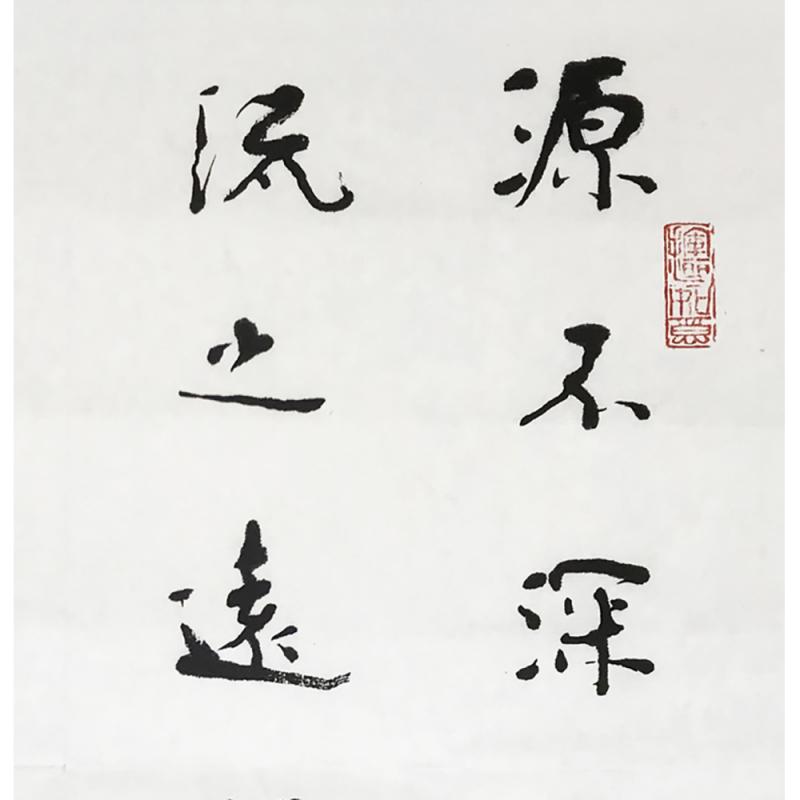 源不深
流之遠